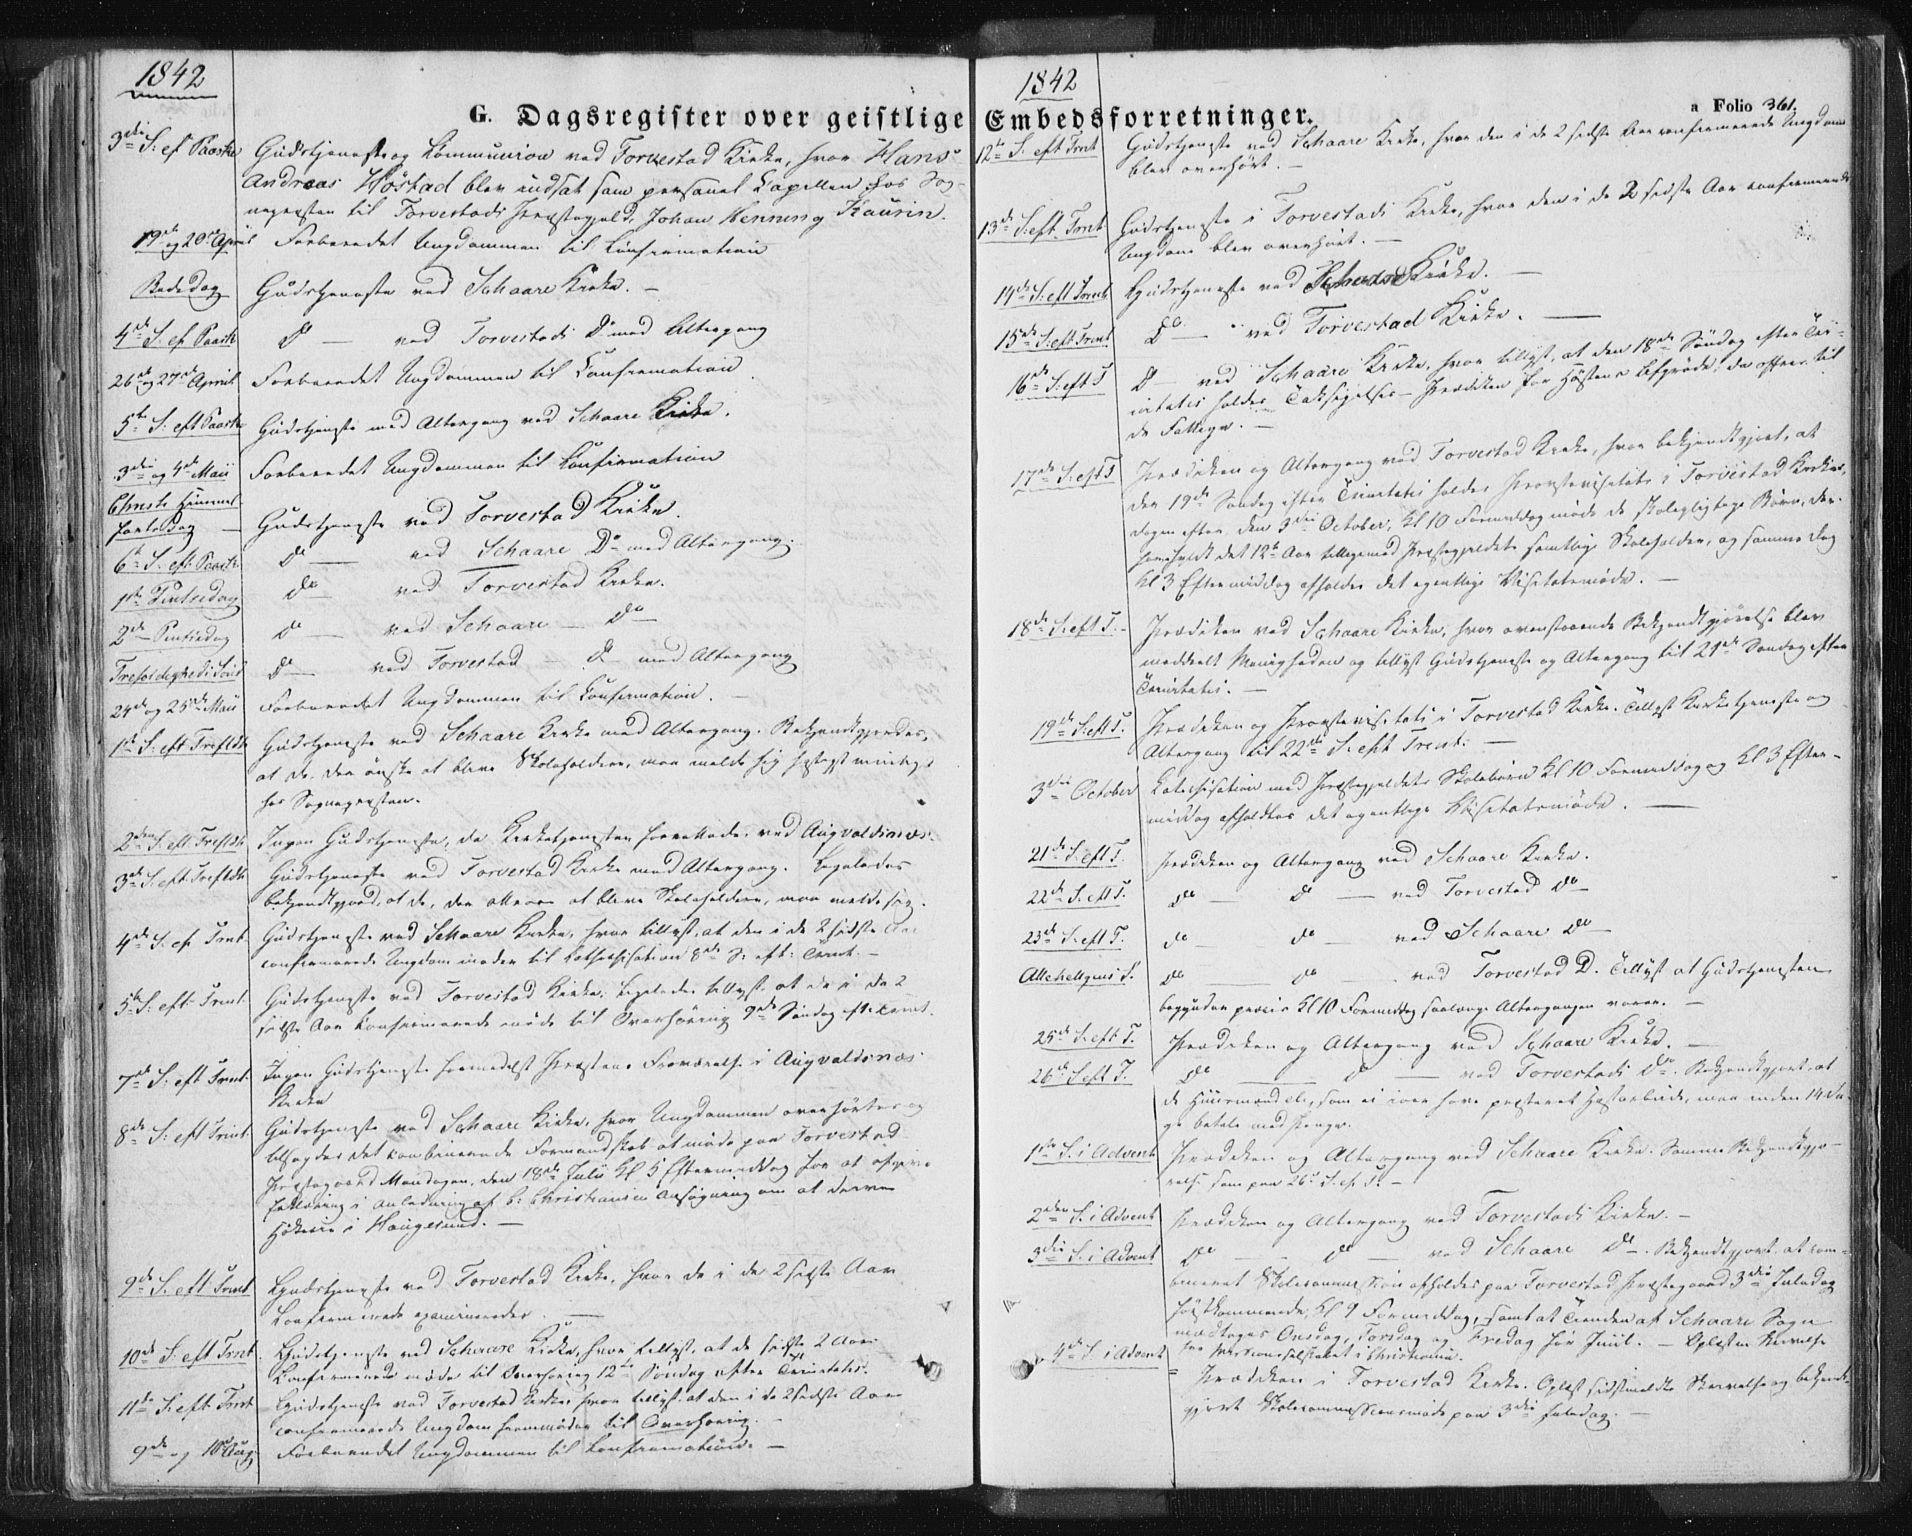 1842
G. Dagsregister over geistlige
3die S: ef Paaske Gudstjeneste og Kommunion ved Torvestad Kirke, hvor Hans
Andreas Höstad blev indsat som personel Capellan hos Sog-
nepresten til Torvestads Præstegjeld, Johan Henning Kaurin.
19de og 20de April Forberedet Ungdommen til Confirmation
Bededag Gudstjeneste ved Schaare Kirke. —
4de S. ef Paaske Do — ved Torvestads Do med Altergang
26de og 27de April Forberedet Ungdommen til Confirmation
5te S: eft Paaske Gudstjeneste med Altergang ved Schaare Kirke.
3die og 4de Maii Forberedet Ungdommen til Confirmation
Christi Himmel-
fartsdag — Gudstjeneste ved Torvestad Kirke.
6te S. eft: Paaske Do — ved Schaare Do med Altergang.
1ste Pintsedag Do — ved Torvestad Kirke.
2den Pintsedag Do — ved Schaare — Do
Trefoldigheds Sönd Do — ved Torvestad — Do med Altergang
24de og 25de Maii Forberedet Ungdommen til Confirmation. —
1ste S. eft Trefldh Gudstjeneste ved Schaare Kirke med Altergang. Bekjendtgjordes,
at de, der önske at blive Skoleholdere, maa melde sig
hos Sognepresten.
2den S. eft Trefldh Ingen Gudstjeneste, da Kirketjenesten forrettedes ved Augvaldsnæs.
3die S. eft Trefldh Gudstjeneste ved Torvestad Kirke med Altergang. Ligeledes
bekjendtgjord, at de, der attraae at blive Skoleholdere, maa melde sig.
4de S. ef Trnt. Gudstjeneste ved Schaare Kirke, hvor tillyst, at den i de 2 sidste Aar
confirmerede Ungdom möder til Kathechisation 8de S: eft: Trint. —
5te S: eft Trnt. Gudstjeneste ved Torvestad Kirke. Ligeledes tillyst at de i de 2
sidste Aar Konfirmerede möde til Overhöring 9de Söndag eft: Trint.
7de S: eft Trnt. Ingen Gudstjeneste formedelst Præstens Fraværelse i Augvaldsnæs
Kirke
8de S: eft Trint. Gudstjeneste ved Schaare Kirke, hvor Ungdommen overhörtes og
tilsagdes det combinerede Formandskab at möde paa Torvestad
Præstegaard Mandagen, den 18de Julii Kl 5 Eftermiddag for at afgive
Erklæring i Anledning af C: Christiansens Ansögning om at drive
Hökerie i Haugesund. —
9de S: eft Trint Gudstjeneste ved Torvestad Kirke, hvor de i de 2 sidste Aar
Konfirmerede examineredes —
10de S: eft Trnt. Gudstjeneste ved Schaare Kirke, hvor tillyst, at de sidste 2 Aars
Konfirmerede möde til Overhöring 12te Söndag efter Trinitatis.
11te S: eft Trnt Gudstjeneste ved Torvestad Kirke, hvor tillyst at den i de 2 sidste Aar
confirmerede Ungdom fremmöder til Overhöring.
9de og 10de Aug: Forberedet Ungdommen til Confirmation. —
1842
Embedsforretninger.
a Folio 361.
12te S. eft Trnt Gudstjeneste ved Schaare Kirke, hvor den i de 2 sidste Aar confirmerede Ungdom
blev overhört. —
13de S. eft. Trnt Gudstjeneste i Torvestads Kirke, hvor den i de 2 sidste Aar confirmerede
Ungdom blev overhört. —
14de S. eft Trnt. Gudstjeneste ved Schaare Kirke. —
15de S: eft Trnt. Do — ved Torvestad Kirke. —
16de S: eft T Do — ved Schaare Kirke, hvor tillyst, at den 18de Söndag efter Tri-
nitatis holdes Taksigelses-Prædiken for Höstens Afgröde. Da offres til
de Fattige. —
17de S. eft T Prædiken og Altergang ved Torvestad Kirke, hvor bekjendtgjort, at
den 19de Söndag efter Trinitatis holdes Provstevisitats i Torvestad Kirke,
Dagen efter den 3die October, Kl 10 Formiddag möde de skolepligtige Börn,
det 12te Aar tilligemed Præstegjeldets samtlige Skoleholdere, og samme Dag
Kl 3 Eftermiddag afholdes det egentlige Visitatsmöde. —
18de S: eft T. Prædiken ved Schaare Kirke, hvor ovenstaaende Bekjendtgjörelse blev
meddeelt Menigheden og tillyst Gudstjeneste og Altergang til 21de Söndag efter
Trinitatis. —
19de S: eft T. Prædiken og Provstevisitats i Torvestad Kirke. Tillyst Kirketjeneste og
Altergang til 22de S: eft Trint. —
3die October Katechisation med Præstegjeldets Skolebörn Kl 10 Formiddag og Kl 3 Efter-
middag afholdtes det egentlige Visitatsmöde. —
21de S: eft T. Prædiken og Altergang ved Schaare Kirke.
22de S. eft T. Do — Do — ved Torvestad Do
23de S: eft T. Do — Do — ved Schaare Do
Allehelgens S. Do — Do — ved Torvestad D. Tillyst at Gudstjenesten
begynder præcis Kl 10 Formiddag saalænge Altergangen varer. —
25de S: eft T. Prædiken og Altergang ved Schaare Kirke. —
26de S eft T. Do — Do — ved Torvestads Do. Bekjendtgjort, at
de Huusmænd etc, som ei iaar have præsteret Höstarbeide, maa inden 14 Da-
ge betale med Penge.
1ste S. i Advent Prædiken og Altergang ved Schaare Kirke. Samme Bekjendtgjö-
relse som paa 26de S. ef T. —
2den S. i Advent Prædiken og Altergang ved Torvestads Kirke. —
3die S. i Advent Do — Do — ved Schaare Do. Bekjendtgjort, at com-
bineret Skolecommission afholdes paa Torvestad Præstegaard 3die Juledag
förstkommende, Kl 9 Formiddag, samt at Tienden af Schaare Sogn
modtages Onsdag, Torsdag og Fredag för Juul. — Oplæst en Skrivelse
fra Missionsselskabet i Christiania.
4de S. i Advent Prædiken i Torvestad Kirke. Oplæst sidstmeldte Skrivelse og bekjendt-
gjort Skolecommissionsmöde paa 3die Juledag. —